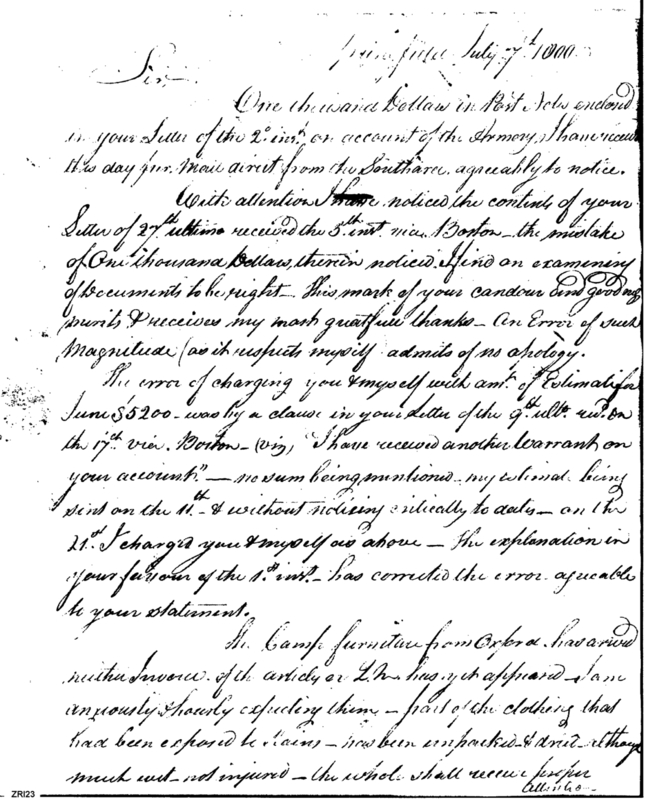 Springfield July 7th 1800
Sir
One thousand Dollars in Post Notes enclosed
in your Letter of the 2d inst. on account of the Armory, I have received
this day pur. Mail direct from the Southard, agreeably to notice.
With attention I have noticed the contents of your
Letter of 27th ultimo received the 5th inst. via. Boston – the mistake
of One thousand Dollars, therein noticed I find on examining
of Documents to be right – this mark of your candour and goodness
merits & receives my most gratefull thanks – An Error of such
Magnitude (as it respects myself admits of no apology.
The error of charging you & myself with amt. of Estimate for
June $5200 – was by a clause in your Letter of the 9th ulto. recd. on
the 17th via Boston – (viz, "I have received another Warrant on
your account" – no sum being mentioned – my estimate being
sent on the 11th – & without noticing critically to dates – on the
21st I charged you & myself as above – the explanation in
your favour of the 1st inst. – has corrected the error agreable
to your statement.
The Camp furniture from Oxford has arived
neither Invoice of the article or has yet appeared – I am
anxiously & hourly expecting them – part of the clothing that
had been exposed to Rains – has been unpacked & dried although
much wet – not injured – the whole shall receive proper
Attention
ZRI23